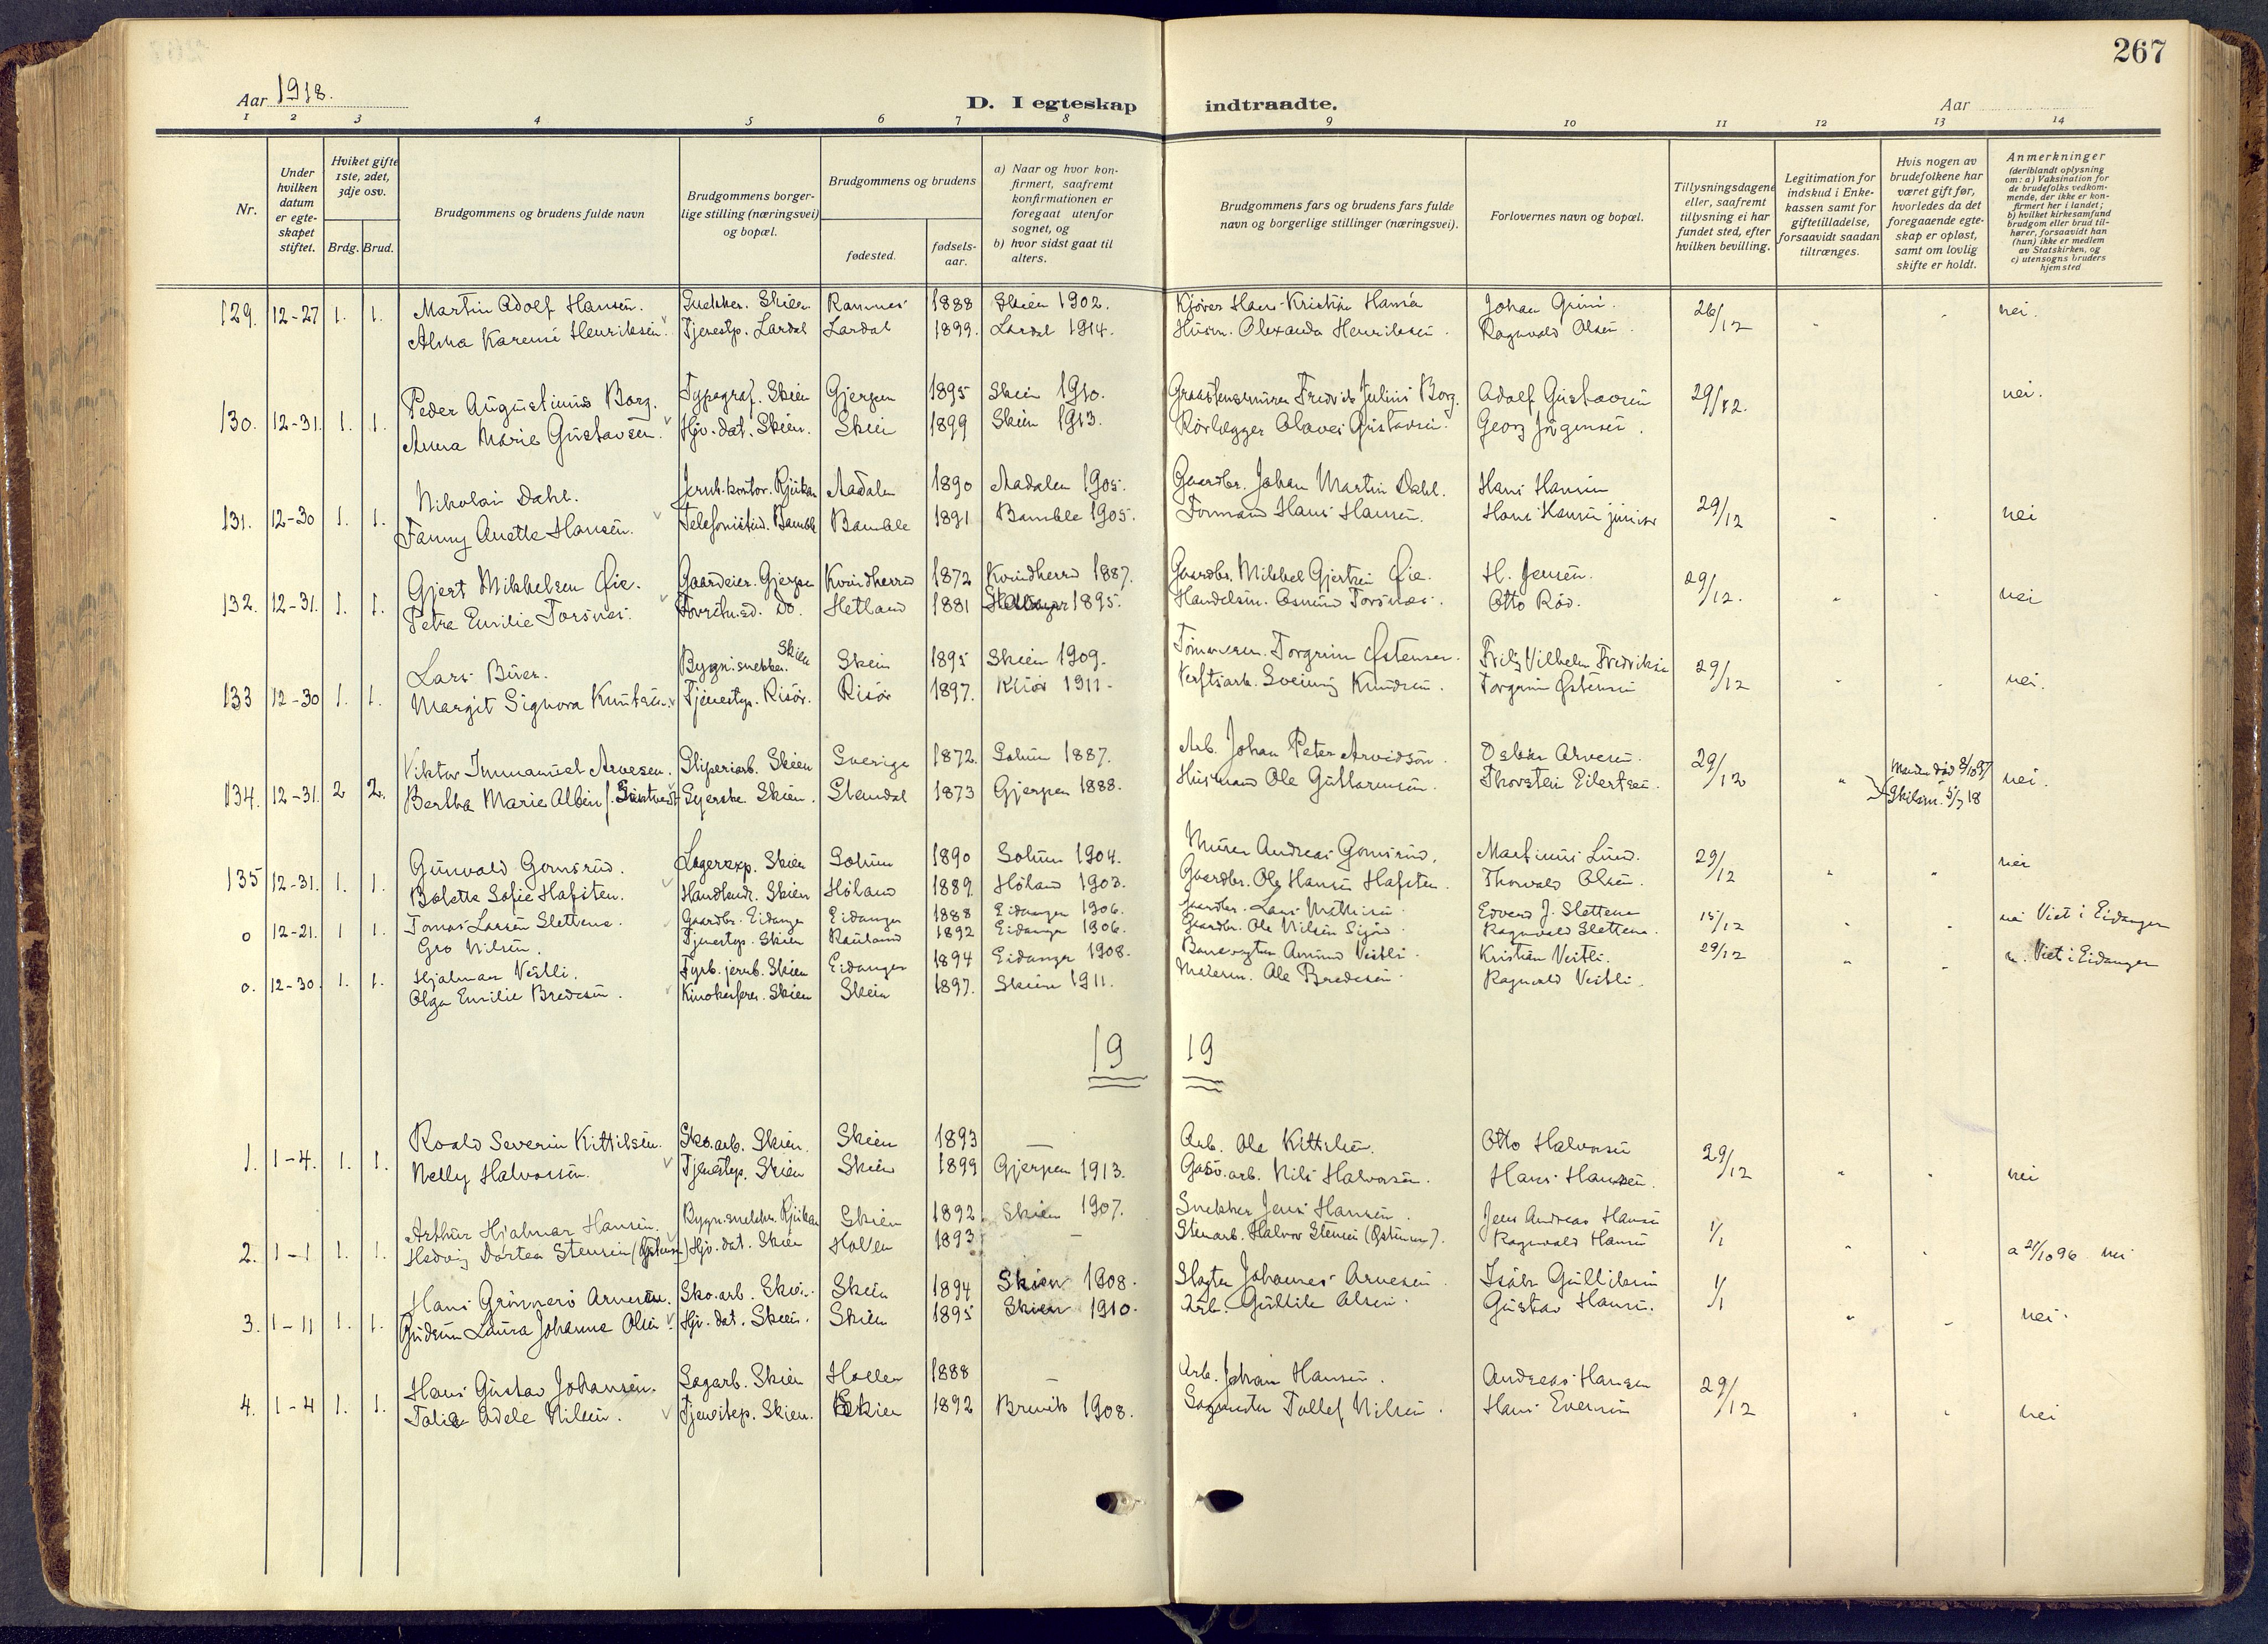 267
Aar 1918.
D. I egteskap indtraadte.
Aar
1 2 3 4 5 6 7 8 9 10 11 12 13 14
Nr.
Under hvilken datum er egte-skapet stiftet.
Hviket gifte 1ste, 2det, 3dje osv.
Brdg. Brud.
Brudgommens og brudens fulde navn
Brudgommens borger-lige stilling (næringsvei) og bopæl.
Brudgommens og brudens
fødested.
fødsels-aar.
a) Naar og hvor kon-firmert, saafremt konfirmationen er foregaat utenfor sognet, og
b) hvor sidst gaat til alters.
Brudgommens fars og brudens fars fulde navn og borgerlige stillinger (næringsvei).
Forlovernes navn og bopæl.
Tillysningsdagene eller, saafremt tillysning ei har fundet sted, efter hvilken bevilling.
Legitimation for indskud i Enke-kassen samt for giftetilladelse, forsaavidt saadan tiltrænges.
Hvis nogen av brudefolkene har været gift før, hvorledes da det foregaaende egte-skap er opløst, samt om lovlig skifte er holdt.
Anmerkninger (deriblandt oplysning om: a) Vaksination for de brudefolks vedkom-mende, der ikke er kon-firmert her i landet; b) hvilket kirkesamfund brudgom eller brud til-hører, forsaavidt han (hun) ikke er medlem av Statskirken, og c) utensogns bruders hjemsted
129. 12-27 1. 1. Martin Adolf Hansen. Snekker. Skien Ramnes 1888 Skien 1902. Kjører Hans Kristian Hansen Johan Grini. 26/12 nei.
Alma Karense Henriksen. Tjenestp. Lardal Lardal 1899. Lardal 1914. Husm. Alexander Henriksen. Ragnvald Olsen.
130. 12-31. 1. 1. Peder Augustinus Borg. Typograf. Skien Gjerpen 1895 Skien 1910. Graastensmurer Fredrik Julius Borg. Adolf Gustavsen 29/12. nei.
Anna Marie Gustavsen. Hjv. dat. Skien. Skien 1899 Skien 1913. Rørlægger Olaves Gustavsen. Georg Jørgensen.
131. 12-30 1. 1. Nikolai Dahl. Jernb.kontor. Rjukan Aadalen 1890 Aadalen 1905. Gaardbr. Johan Martin Dahl. Hans Hansen 29/12 nei
Fanny Anette Hansen. Telefonistind. Bamble Bamble 1891 Bamble 1905. Formand Hans Hansen. Hans Hansen junior
132. 12-31. 1. 1. Gjert Mikkelsen Øie. Gaardeier. Gjerpen Kvindherred 1872 Kvindherred 1887. Gaardbr. Mikkel Gjertsen Øie. H. Jensen. 29/12. nei
Petra Emilie Torsnes. Do. Hetland 1881 1895. Handelsm. Asmund Torsnes. Otto Rød.
133 12-30 1. 1. Lars Buer. Bygn.snekker. Skien Skien 1895 Skien 1909. Tømmerm. Torgrim Østensen. Fritz Vilhelm Fredriksen 29/12 nei.
Margit Signora Knutsen. Tjenestp. Risør. Risør 1897. Risør 1911. Verftsarb. Sveinung Knudsen. Torgrim Østensen
134. 12-31. 2 2. Viktor Immanuel Arvesen. Sliperiarb. Skien Sverige 1872. Solum 1887. Arb. Johan Peter Arvidson. Oskar Arvesen. 29/12 nei.
Bertha Marie Albin Syerske. Skien. Slemdal 1873 Gjerpen 1888. Husmand Ole Guttormsen. Thorsten Eilertsen. Skilsm. 5/7 18
135 12-31. 1. 1. Gunvald Gomsrud. Lagerexp. Skien Solum 1890 Solum 1904. Murer Andreas Gomsrud. Martinius Lund. 29/12 nei
Bolette Sofie Hafsten. Handlende. Skien Høland 1889. Høland 1903. Gaardbr. Ole Hansen Hafsten. Thorvald Olsen.
o 12-21. 1 1. Tomas Larsen Slettene. Gaardbr. Eidanger Eidanger 1888 Eidanger 1906. Gaardbr. Lars Mathisen. Edvard J. Slettene 15/12 nei Viet i Eidanger
Gro Nilsen. Tjenestp. Skien Rauland 1892 Eidanger 1906. Gaardbr. Ole Nilsen Ragnvald Slettene.
o. 12-30. 1. 1. Hjalmar Vestli. Fyrb. jernb. Skien Eidanger 1894 Eidanger 1908. Banevogter Amund Vestli. Kristian Vestli. 29/12 n. Viet i Eidanger
Olga Emilie Bredesen. Skien Skien 1897. Skien 1911. Malerm. Ole Bredesen Ragnvald Vestli.
19 19
1. 1-4. 1. 1. Roald Severin Kittilsen. Sko.arb. Skien. Skien 1893 — Arb. Ole Kittilsen. Otto Halvorsen 29/12 nei
Nelly Halvorsen. Tjenestp. Skien Skien 1899 Gjerpen 1913. Gasv.arb. Nils Halvorsen. Hans Hansen.
2. 1-1 1. 1. Arthur Hjalmar Hansen. Bygn.snekker. Rjukan Skien 1892 Skien 1907. Snekker Jens Hansen. Jens Andreas Hansen 1/1 a 21/10 96 nei
Hedvig Dortea Stensen (Østensen) Hjv. dat. Skien Hollen 1893 - Stenarb. Halvor Stensen (Østensen). Ragnvald Hansen
3. 1-11 1. 1. Hans Grønnerø Arnesen. Sko.arb. Skien. Skien 1894 Skien 1908. Slagter Johannes Arnesen. Isak Gulliksen 1/1 nei.
Gudrun Laura Johanne Olsen Hjv. dat. Skien. Skien 1895 Skien 1910. Arb. Gullik Olsen. Gustav Hansen.
4. 1-4 1. 1. Hans Gustav Johansen. Sagarb. Skien Hollen 1888 — Arb. Johan Hansen. Andreas Hansen 29/12 nei
Adele Nilsen. Tjenstep. Skien. Skien 1892 Brevik 1908. Sagmester Tollef Nilsen. Hans Evensen